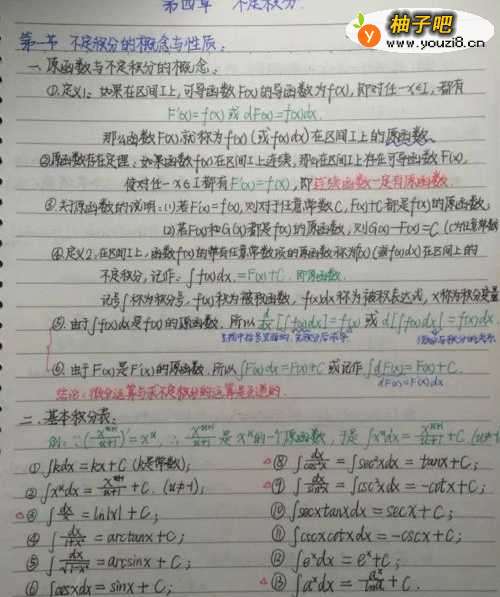 第四章 不定积分
柚子吧
www.youzi8.cn
第一节 不定积分的概念与性质:
一、原函数与不定积分的概念:
①.定义1:如果在区间I上,可导函数F(x)的导函数为f(x),即对任一x∈I,都有
F'(x)=f(x) 或 dF(x)=f(x)dx.
那么函数F(x)就称为f(x)(或f(x)dx)在区间I上的原函数.
②原函数存在定理:如果函数f(x)在区间I上连续,那么在区间I上存在可导函数F(x),
使对任一x∈I都有F'(x)=f(x),即连续函数一定有原函数.
③关于原函数的说明:(1)若F'(x)=f(x),则对于任意常数C,F(x)+C都是f(x)的原函数;
(2)若F(x)和G(x)都是f(x)的原函数,则G(x)-F(x)=C (C为任意常数
④.定义2:在区间I上,函数f(x)的带有任意常数项的原函数称为f(x)(或f(x)dx)在区间I上的
不定积分,记作:∫f(x)dx.=F(x)+C.即原函数.
记号∫称为积分号,f(x)称为被积函数,f(x)dx称为被积表达式,x称为积分变量
⑤.由于∫f(x)dx是f(x)的原函数,所以 d/dx[∫f(x)dx]=f(x) 或 d[∫f(x)dx]=f(x)dx.
⑥.由于F(x)是F'(x)的原函数,所以∫F'(x)dx=F(x)+C 或记作∫dF(x)=F(x)+C.
dF(x)=F'(x)dx
结论:微分运算与求不定积分的运算是互逆的.
二、基本积分表:
例:∵(x^(u+1)/(u+1))'=x^u, ∴ x^(u+1)/(u+1) 是x^u的一个原函数,于是∫x^u dx=x^(u+1)/(u+1)+C (u≠-1
①∫kdx=kx+C (k是常数);
②∫x^u dx=x^(u+1)/(u+1)+C.(u≠-1);
③∫dx/x=ln|x|+C;
④∫dx/(1+x²)=arctanx+C;
⑤∫dx/√(1-x²)=arcsinx+C;
⑥∫cosxdx=sinx+C;
⑧∫dx/cos²x=∫sec²xdx=tanx+C;
⑨∫dx/sin²x=∫csc²xdx=-cotx+C;
⑩∫secxtanxdx=secx+C;
⑪∫cscxcotxdx=-cscx+C;
⑫∫e^x dx=e^x+C;
⑬∫a^x dx=a^x/lna+C.